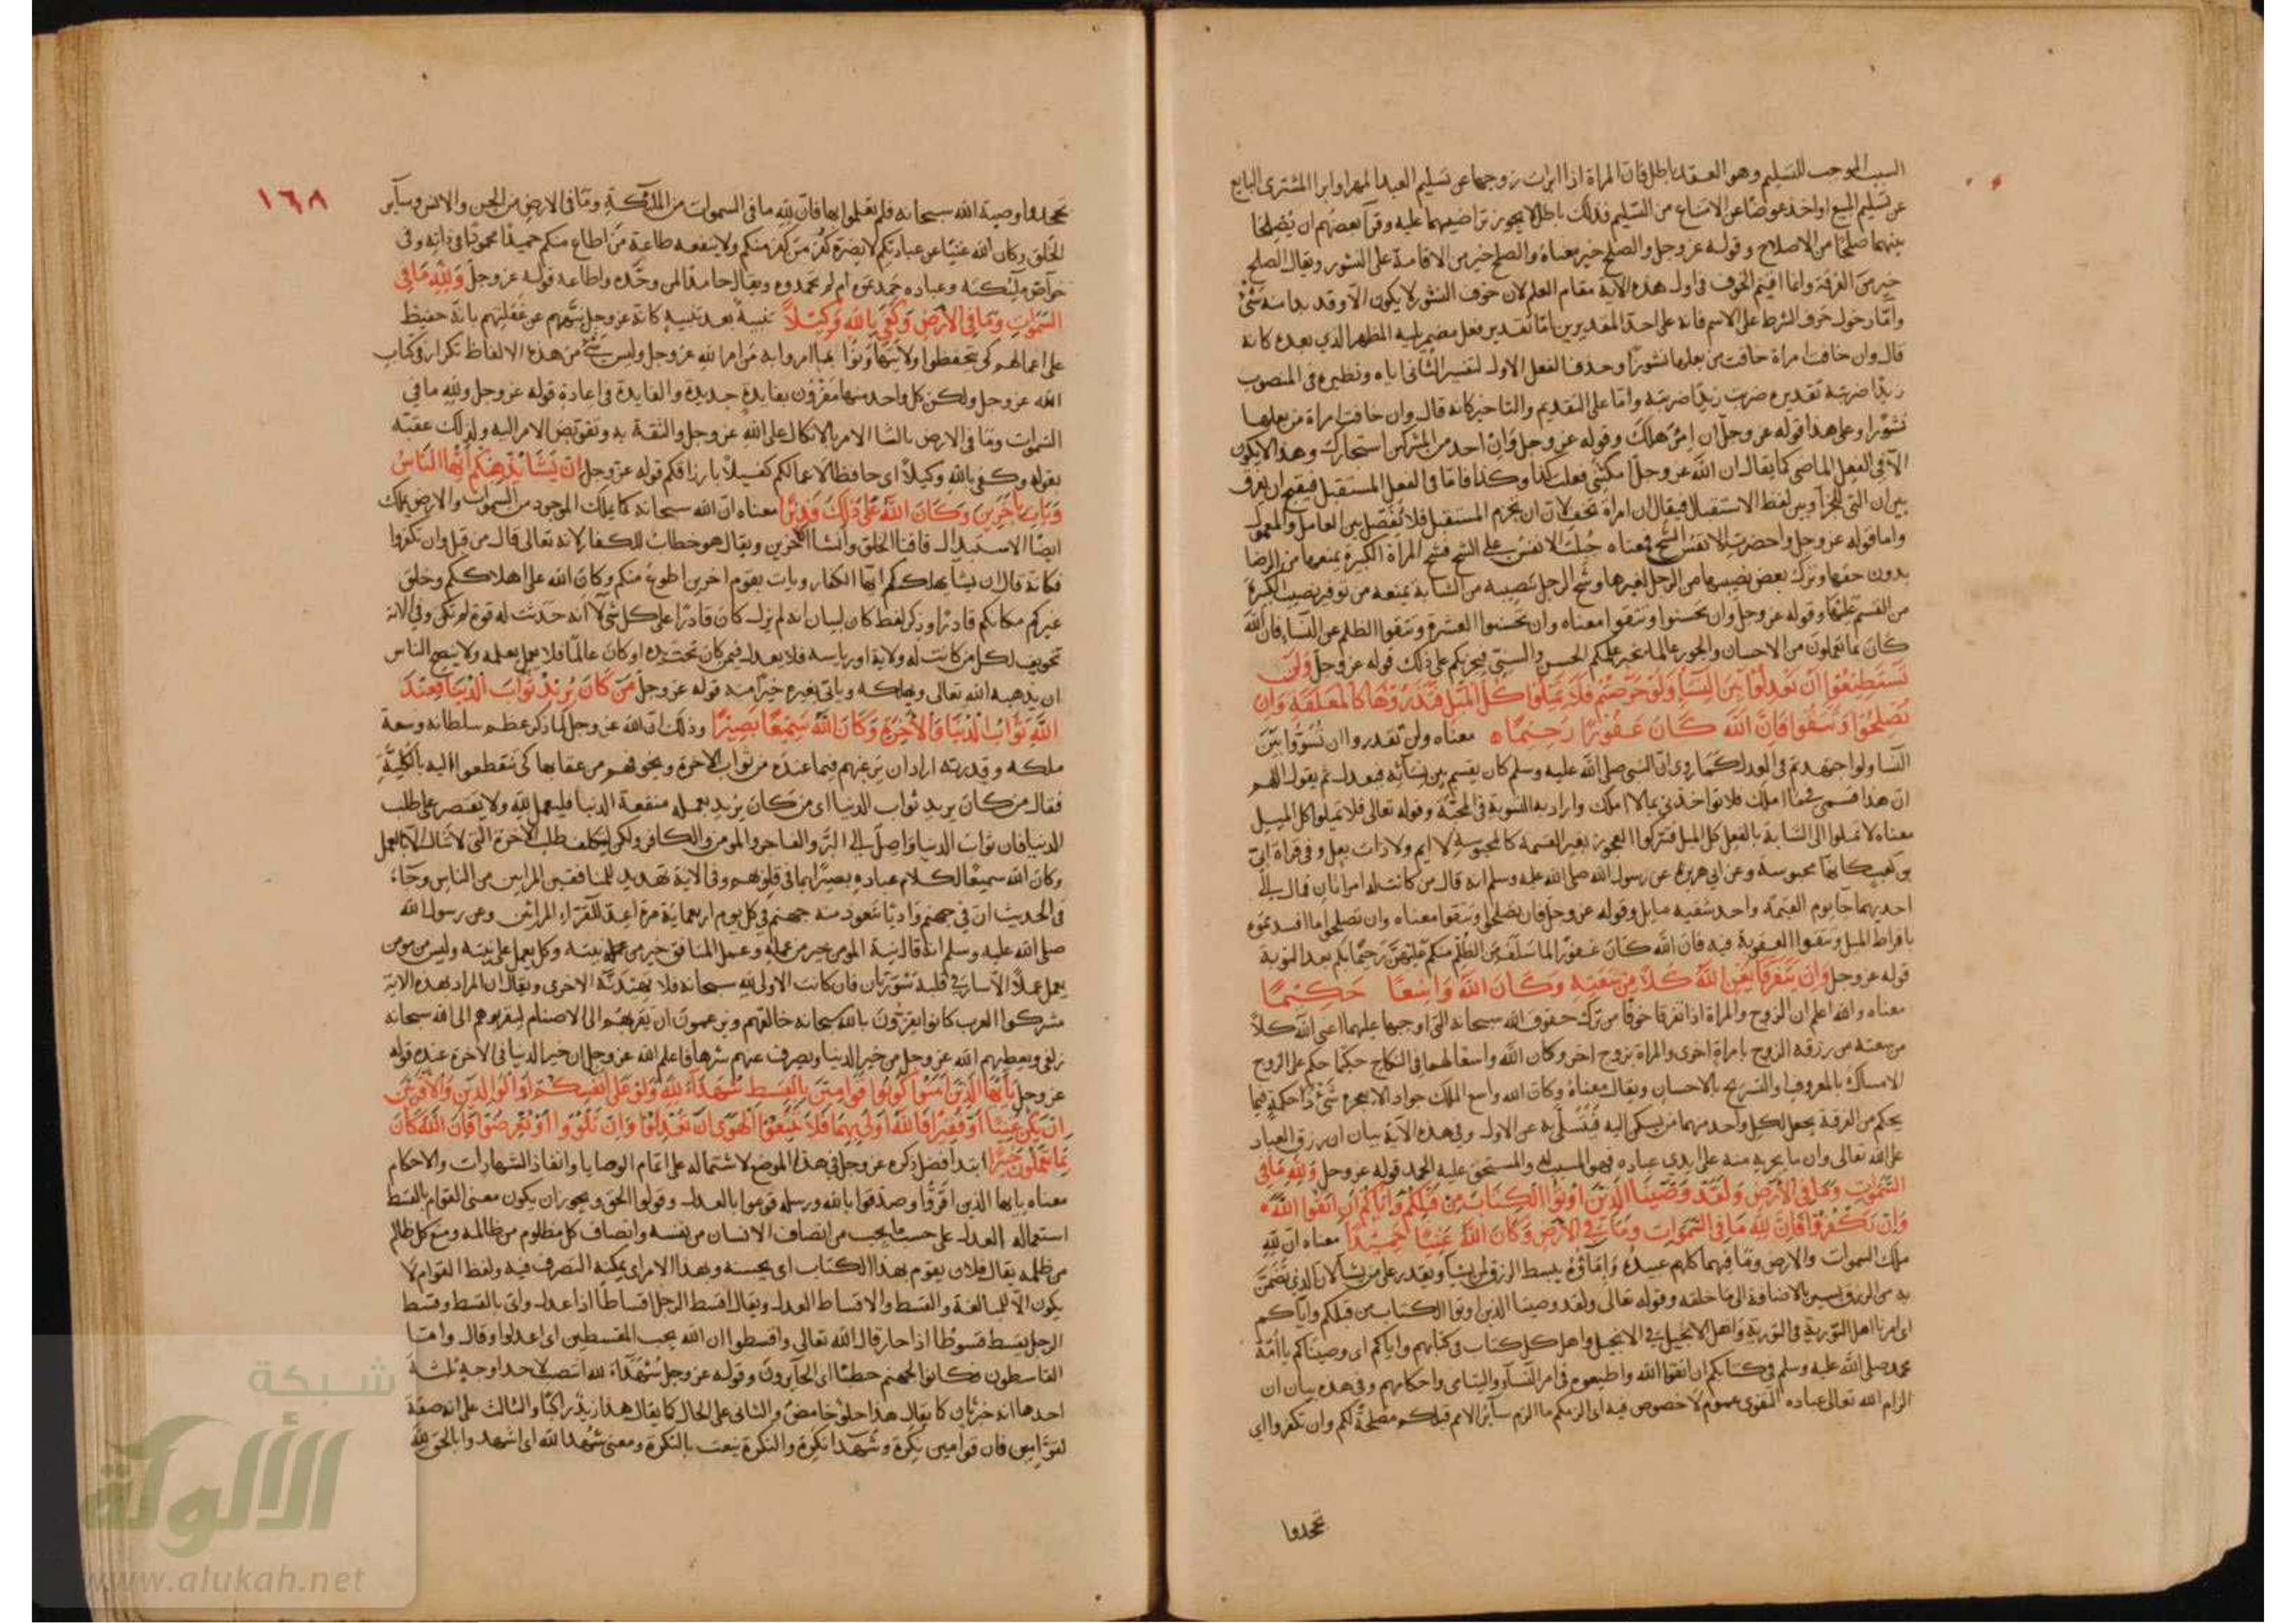 السبب الموجب للتسليم وهو العقد باطل فان المراة اذا ابرات زوجها عن تسليم العبد المهر او ابرا المشترى البايع
عن تسليم المبيع او اخذ عوضا عن الامتناع من التسليم فذلك باطل لا يجوز تراضيهما عليه وقرا بعضهم ان يصلحا
بينهما صلحا من الاصلاح وقوله عز وجل والصلح خير معناه والصلح خير من الاقامة على النشوز ويقال الصلح
خير من الفرقة وانما اقيم الخوف فى اول هذه الاية مقام العلم لان خوف النشوز لا يكون الا وقد بدا منه شئ
واما دخول حرف الشرط على الاسم فانه على احد التقديرين اما تقدير فعل مضمر يليه المظهر الذي بعده كانه
قال وان خافت امراة خافت من بعلها نشوزا وحذف الفعل الاول لتفسير الثانى اياه ونظيره فى المنصوب
زيدا ضربته تقديره ضربت زيدا ضربته واما على التقديم والتاخير كانه قال وان خافت امراة من بعلها
نشوزا وعلى هذا قوله عز وجل ان امرؤ هلك وقوله عز وجل وان احد من المشركين استجارك وهذا لا يكون
الا فى الفعل الماضى كما يقال ان الله عز وجل امكننى فعلت كذا وكذا فاما فى الفعل المستقبل فيقبح ان يفرق
بين ان التى للجزا وبين لفظ الاستقبال فيقال ان امراة تخف لان ان تجزم المستقبل فلا يفصل بين العامل والمعمول
واما قوله عز وجل واحضرت الانفس الشح فمعناه جبلت الانفس على الشح فشح المراة الكبيرة يمنعها من الرضا
بدون حقها وترك بعض نصيبها من الرجل لغيرها وشح الرجل بنصيبه من الشابة يمنعه من توفير نصيب الكبيرة
من القسم عليها وقوله عز وجل وان تحسنوا وتتقوا معناه وان تحسنوا العشرة وتتقوا الظلم على النساء فان الله
كان بما تعملون من الاحسان والجور عالما يخبر علمكم الحسن والسيئ فيجزيكم على ذلك قوله عز وجل ولن
تستطيعوا ان تعدلوا بين النساء ولو حرصتم فلا تميلوا كل الميل فتذروها كالمعلقة وان
تصلحوا وتتقوا فان الله كان غفورا رحيما معناه ولن تقدروا ان تسووا بين
النسا ولو اجتهدتم فى العدل كما روى ان النبى صلى الله عليه وسلم كان يقسم بين نسائه فيعدل ثم يقول اللهم
ان هذا قسمى فيما املك فلا تواخذنى بما لا املك واراد به التسوية فى المحبة وقوله تعالى فلا تميلوا كل الميل
معناه لا تميلوا الى الشابة بالفعل كل الميل فتتركوا العجوز بغير القسمة كالمحبوسة لا ايم ولا ذات بعل وفى قراة ابى
بن كعب كانها محبوسة وعن ابى هريرة عن رسول الله صلى الله عليه وسلم انه قال من كانت له امراتان فمال الى
احديهما جا يوم القيمة واحد شقيه مايل وقوله عز وجل فان تصلحوا وتتقوا معناه وان تصلحوا ما افسدتموه
بافراط الميل وتتقوا العقوبة فيه فان الله كان غفورا لما سلف من الظلم منكم عليهن رحيما بكم بعد التوبة
قوله عز وجل وان يتفرقا يغن الله كلا من سعته وكان الله واسعا حكيما
معناه والله اعلم ان الزوج والمراة اذا تفرقا خوفا من ترك حقوق الله سبحانه التى اوجبها عليهما اغنى الله كلا
من سعته من رزقه الزوج بامراة اخرى والمراة بزوج اخر وكان الله واسعا لهما فى النكاح حكيما حكم على الزوج
الامساك بالمعروف والتسريح بالاحسان ويقال معناه وكان الله واسع الملك جواد لا يعجزه شئ ذا حكمة فيما
يحكم من الفرقة يجعل لكل واحد منهما من يسكن اليه فيتسلى به عن الاول وفى هذه الاية بيان ان رزق العباد
على الله تعالى وان ما يجريه منه على ايدى عباده فهو المسبب له والمستحق عليه الحمد قوله عز وجل ولله ما فى
السموات وما فى الارض ولقد وصينا الذين اوتوا الكتاب من قبلكم واياكم ان اتقوا الله
وان تكفروا فان لله ما فى السموات وما فى الارض وكان الله غنيا حميدا معناه ان لله
ملك السموات والارض وما فيهما كلهم عبيده واماؤه يبسط الرزق لمن يشا ويقدر على من يشا لان الذى تضمن
به من الرزق يسير بالاضافة الى ما خلقه وقوله تعالى ولقد وصينا الذين اوتوا الكتاب من قبلكم واياكم
اى امرنا اهل التورية فى التورية واهل الانجيل فى الانجيل واهل كل كتاب فى كتابهم واياكم اى وصيناكم يا امة
محمد صلى الله عليه وسلم فى كتابكم ان اتقوا الله واطيعوه فى امر النساء واليتامى واحكامهم وفى هذه بيان ان
الزام الله تعالى عباده التقوى عموم لا خصوص فيه اى الزمكم ما الزم سائر الامم قبلكم مصلحة لكم وان تكفروا اى
تجحدوا
١٦٨
تجحدوا وصية الله سبحانه فلم تعملوا بها فان لله ما فى السموات من الملائكة وما فى الارض من الجن والانس وساير
الخلق وكان الله غنيا عن عبادتكم لا يضره كفر من كفر منكم ولا ينفعه طاعة من اطاع منكم حميدا محمودا فى ذاته وفى
خواص ملئكته وعباده حمدتموه ام لم تحمدوه ويقال حامدا لمن وحده واطاعه قوله عز وجل ولله ما فى
السموات وما فى الارض وكفى بالله وكيلا تنبيه بعد تنبيه كانه عز وجل ينبههم عن غفلتهم بانه حفيظ
على اعمالهم كى يتحفظوا ولا يتهاونوا بما امروا به من امر الله عز وجل وليس شئ من هذه الالفاظ تكرار فى كتاب
الله عز وجل ولكن كل واحد منها مقرون بفايدة جديدة والفايدة فى اعادة قوله عز وجل ولله ما فى
السموات وما فى الارض بالثنا الامر بالاتكال على الله عز وجل والثقة به وتفويض الامر اليه ولذلك عقبه
بقوله وكفى بالله وكيلا اى حافظا لاعمالكم كفيلا بارزاقكم قوله عز وجل ان يشا يذهبكم ايها الناس
ويات باخرين وكان الله على ذلك قديرا معناه ان الله سبحانه كما يملك الموجود من السموات والارض يملك
ايضا الاستبدال فافنا الخلق وانشا الاخرين ويقال هو خطاب للكفار لانه تعالى قال من قبل وان تكفروا
فكانه قال ان يشا يهلككم ايها الكفار ويات بقوم اخرين اطوع منكم وكان الله على اهلاككم وخلق
غيركم مكانكم قادرا وذكر لفظ كان لبيان انه لم يزل كان قادرا على كل شئ لا انه حدثت له قوة لم تكن وفى الاية
تخويف لكل من كانت له ولاية او رياسة فلا يعدل فيمن كان تحت يده او كان عالما فلا يعمل بعلمه ولا ينصح الناس
ان يذهبه الله تعالى ويهلكه وياتى بغيره خيرا منه قوله عز وجل من كان يريد ثواب الدنيا فعند
الله ثواب الدنيا والاخرة وكان الله سميعا بصيرا وذلك ان الله عز وجل لما ذكر عظم سلطانه وسعة
ملكه وقدرته اراد ان يرغبهم فيما عنده من ثواب الاخرة ويخوفهم من عقابها كى ينقطعوا اليه بالكلية
فقال من كان يريد ثواب الدنيا اى من كان يريد بعمله منفعة الدنيا فليعمل لله ولا يقتصر على طلب
الدنيا فان ثواب الدنيا واصل الى البر والفاجر والمومن والكافر ولكن ليتكلف طلب الاخرة التى لا تنال الا بالعمل
وكان الله سميعا لكلام عباده بصيرا بما فى قلوبهم وفى الاية تهديد للمنافقين المرايين من الناس وجاء
فى الحديث ان فى جهنم واديا تتعوذ منه جهنم فى كل يوم اربعماية مرة اعد للقراء المرائين وعن رسول الله
صلى الله عليه وسلم انه قال نية المومن خير من عمله وعمل المنافق خير من نيته وكل يعمل على نيته وليس من مومن
يعمل عملا الا سار فى قلبه سورتان فان كانت الاولى لله سبحانه فلا يهيدنه الاخرى ويقال ان المراد بهذه الاية
مشركوا العرب كانوا يقرون بالله سبحانه خالقهم ويزعمون ان يقربهم الى الاصنام ليقربوهم الى الله سبحانه
زلفى ويعطيهم الله عز وجل من خير الدنيا ويصرف عنهم شرها فاعلم الله عز وجل ان خير الدنيا فى الاخرة عنده قوله
عز وجل يا ايها الذين امنوا كونوا قوامين بالقسط شهداء لله ولو على انفسكم او الوالدين والاقربين
ان يكن غنيا او فقيرا فالله اولى بهما فلا تتبعوا الهوى ان تعدلوا وان تلووا او تعرضوا فان الله كان
بما تعملون خبيرا ابتدا فضل ذكره عز وجل فى هذا الموضع لاشتماله على اتمام الوصايا وانفاذ الشهادات والاحكام
معناه يا ايها الذين اقروا وصدقوا بالله ورسله قوموا بالعدل وقولوا الحق ويجوز ان يكون معنى القوام بالقسط
استعماله العدل على حسب ما يجب من انصاف الانسان من نفسه وانصاف كل مظلوم من ظالمه ومنع كل ظالم
من ظلمه يقال فلان يقوم بهذا الكتاب اى يحسنه وبهذا الامر اى يمكنه التصرف فيه ولفظ القوام لا
يكون الا للمبالغة والقسط والاقساط العدل ويقال اقسط الرجل اقساطا اذا عدل واتى بالقسط وقسط
الرجل يقسط قسوطا اذا جار قال الله تعالى واقسطوا ان الله يحب المقسطين اى اعدلوا وقال واما
القاسطون فكانوا لجهنم حطبا اى الجايرون وقوله عز وجل شهداء لله انتصب لاحد اوجه ثلثة
احدها انه خبر ثان كما يقال هذا حلو حامض والثانى على الحال كما يقال هذا زيد راكبا والثالث على انه صفة
لقوامين فان قوامين نكرة وشهدا نكرة والنكرة تنعت بالنكرة ومعنى شهدا لله اى اشهدوا بالحق لله
شبكة
الألوكة
www.alukah.net